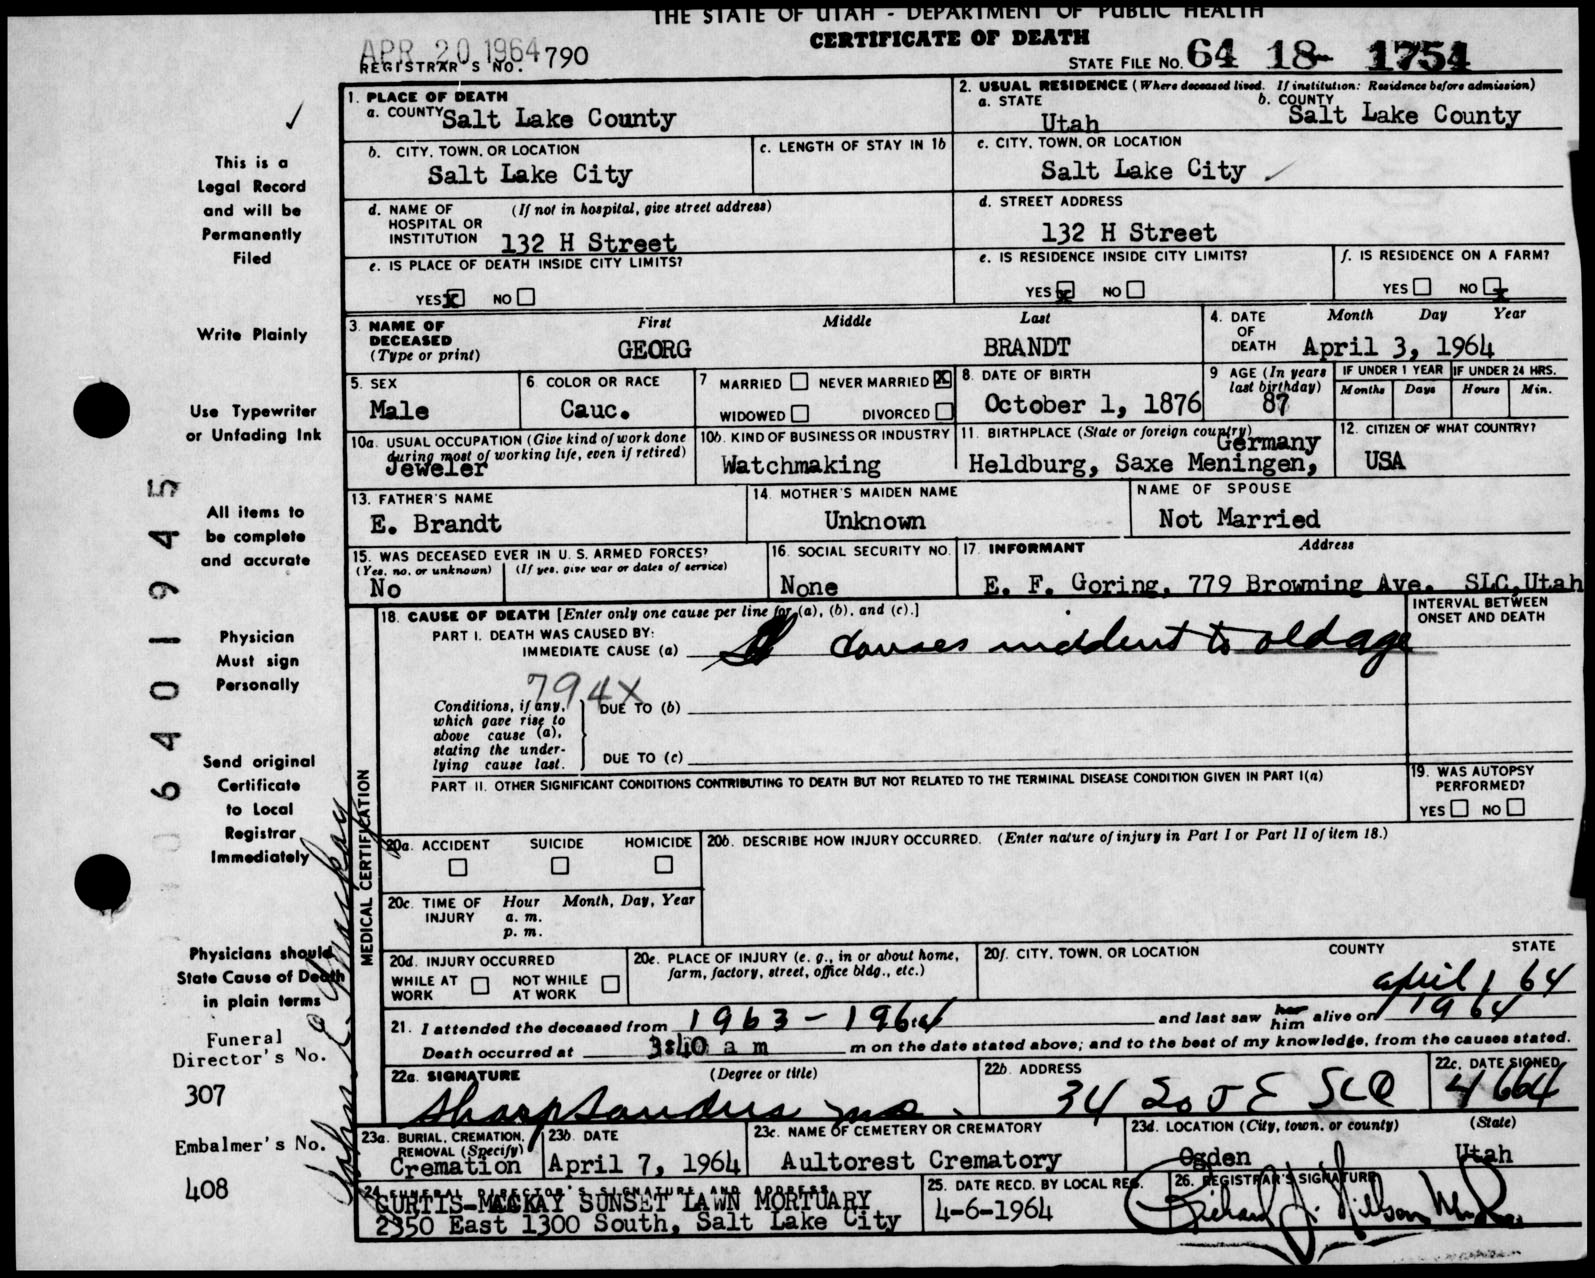 THE STATE OF UTAH - DEPARTMENT OF PUBLIC HEALTH
CERTIFICATE OF DEATH
APR 20 1964
REGISTRAR'S NO. 790
STATE FILE NO. 64 18- 1751
1. PLACE OF DEATH
a. COUNTY Salt Lake County
2. USUAL RESIDENCE (Where deceased lived. If institution: Residence before admission)
a. STATE Utah
b. COUNTY Salt Lake County
b. CITY, TOWN, OR LOCATION
Salt Lake City
c. LENGTH OF STAY IN 1b
c. CITY, TOWN, OR LOCATION
Salt Lake City
d. NAME OF HOSPITAL OR INSTITUTION (If not in hospital, give street address)
132 H Street
d. STREET ADDRESS
132 H Street
e. IS PLACE OF DEATH INSIDE CITY LIMITS?
YES X NO
e. IS RESIDENCE INSIDE CITY LIMITS?
YES X NO
f. IS RESIDENCE ON A FARM?
YES NO X
3. NAME OF DECEASED (Type or print)
First Middle Last
GEORG BRANDT
4. DATE OF DEATH
Month Day Year
April 3, 1964
5. SEX
Male
6. COLOR OR RACE
Cauc.
7 MARRIED NEVER MARRIED X
WIDOWED DIVORCED
8. DATE OF BIRTH
October 1, 1876
9 AGE (In years last birthday)
87
IF UNDER 1 YEAR
Months Days
IF UNDER 24 HRS.
Hours Min.
10a. USUAL OCCUPATION (Give kind of work done during most of working life, even if retired)
Jeweler
10b. KIND OF BUSINESS OR INDUSTRY
Watchmaking
11. BIRTHPLACE (State or foreign country)
Germany
Heldburg, Saxe Meningen,
12. CITIZEN OF WHAT COUNTRY?
USA
13. FATHER'S NAME
E. Brandt
14. MOTHER'S MAIDEN NAME
Unknown
NAME OF SPOUSE
Not Married
15. WAS DECEASED EVER IN U. S. ARMED FORCES?
(Yes, no, or unknown) (If yes, give war or dates of service)
No
16. SOCIAL SECURITY NO.
None
17. INFORMANT Address
E. F. Goring, 779 Browning Ave. SLC, Utah
18. CAUSE OF DEATH [Enter only one cause per line for (a), (b), and (c).]
INTERVAL BETWEEN ONSET AND DEATH
PART I. DEATH WAS CAUSED BY:
IMMEDIATE CAUSE (a) causes incident to old age
794X
Conditions, if any, which gave rise to above cause (a), stating the underlying cause last.
DUE TO (b)
DUE TO (c)
PART II. OTHER SIGNIFICANT CONDITIONS CONTRIBUTING TO DEATH BUT NOT RELATED TO THE TERMINAL DISEASE CONDITION GIVEN IN PART I(a)
19. WAS AUTOPSY PERFORMED?
YES NO
MEDICAL CERTIFICATION
20a. ACCIDENT SUICIDE HOMICIDE
20b. DESCRIBE HOW INJURY OCCURRED. (Enter nature of injury in Part I or Part II of item 18.)
20c. TIME OF INJURY
Hour Month, Day, Year
a. m.
p. m.
20d. INJURY OCCURRED
WHILE AT WORK NOT WHILE AT WORK
20e. PLACE OF INJURY (e. g., in or about home, farm, factory, street, office bldg., etc.)
20f. CITY, TOWN, OR LOCATION COUNTY STATE
april 1 64
21. I attended the deceased from 1963 - 1964 and last saw her him alive on 1964
Death occurred at 3:40 a m m on the date stated above; and to the best of my knowledge, from the causes stated.
22a. SIGNATURE (Degree or title)
Sharp Sanders MD.
22b. ADDRESS
34 So 5 E SLC
22c. DATE SIGNED
4 6 64
23a. BURIAL, CREMATION, REMOVAL (Specify)
Cremation
23b. DATE
April 7, 1964
23c. NAME OF CEMETERY OR CREMATORY
Aultorest Crematory
23d. LOCATION (City, town, or county) (State)
Ogden Utah
24. FUNERAL DIRECTOR'S SIGNATURE AND ADDRESS
CURTIS-MACKAY SUNSET LAWN MORTUARY
2350 East 1300 South, Salt Lake City
25. DATE RECD. BY LOCAL REG.
4-6-1964
26. REGISTRAR'S SIGNATURE
This is a
Legal Record
and will be
Permanently
Filed
Write Plainly
Use Typewriter
or Unfading Ink
All items to
be complete
and accurate
Physician
Must sign
Personally
Send original
Certificate
to Local
Registrar
Immediately
Physicians should
State Cause of Death
in plain terms
Funeral
Director's No.
307
Embalmer's No.
408
John E Mackay
06401945